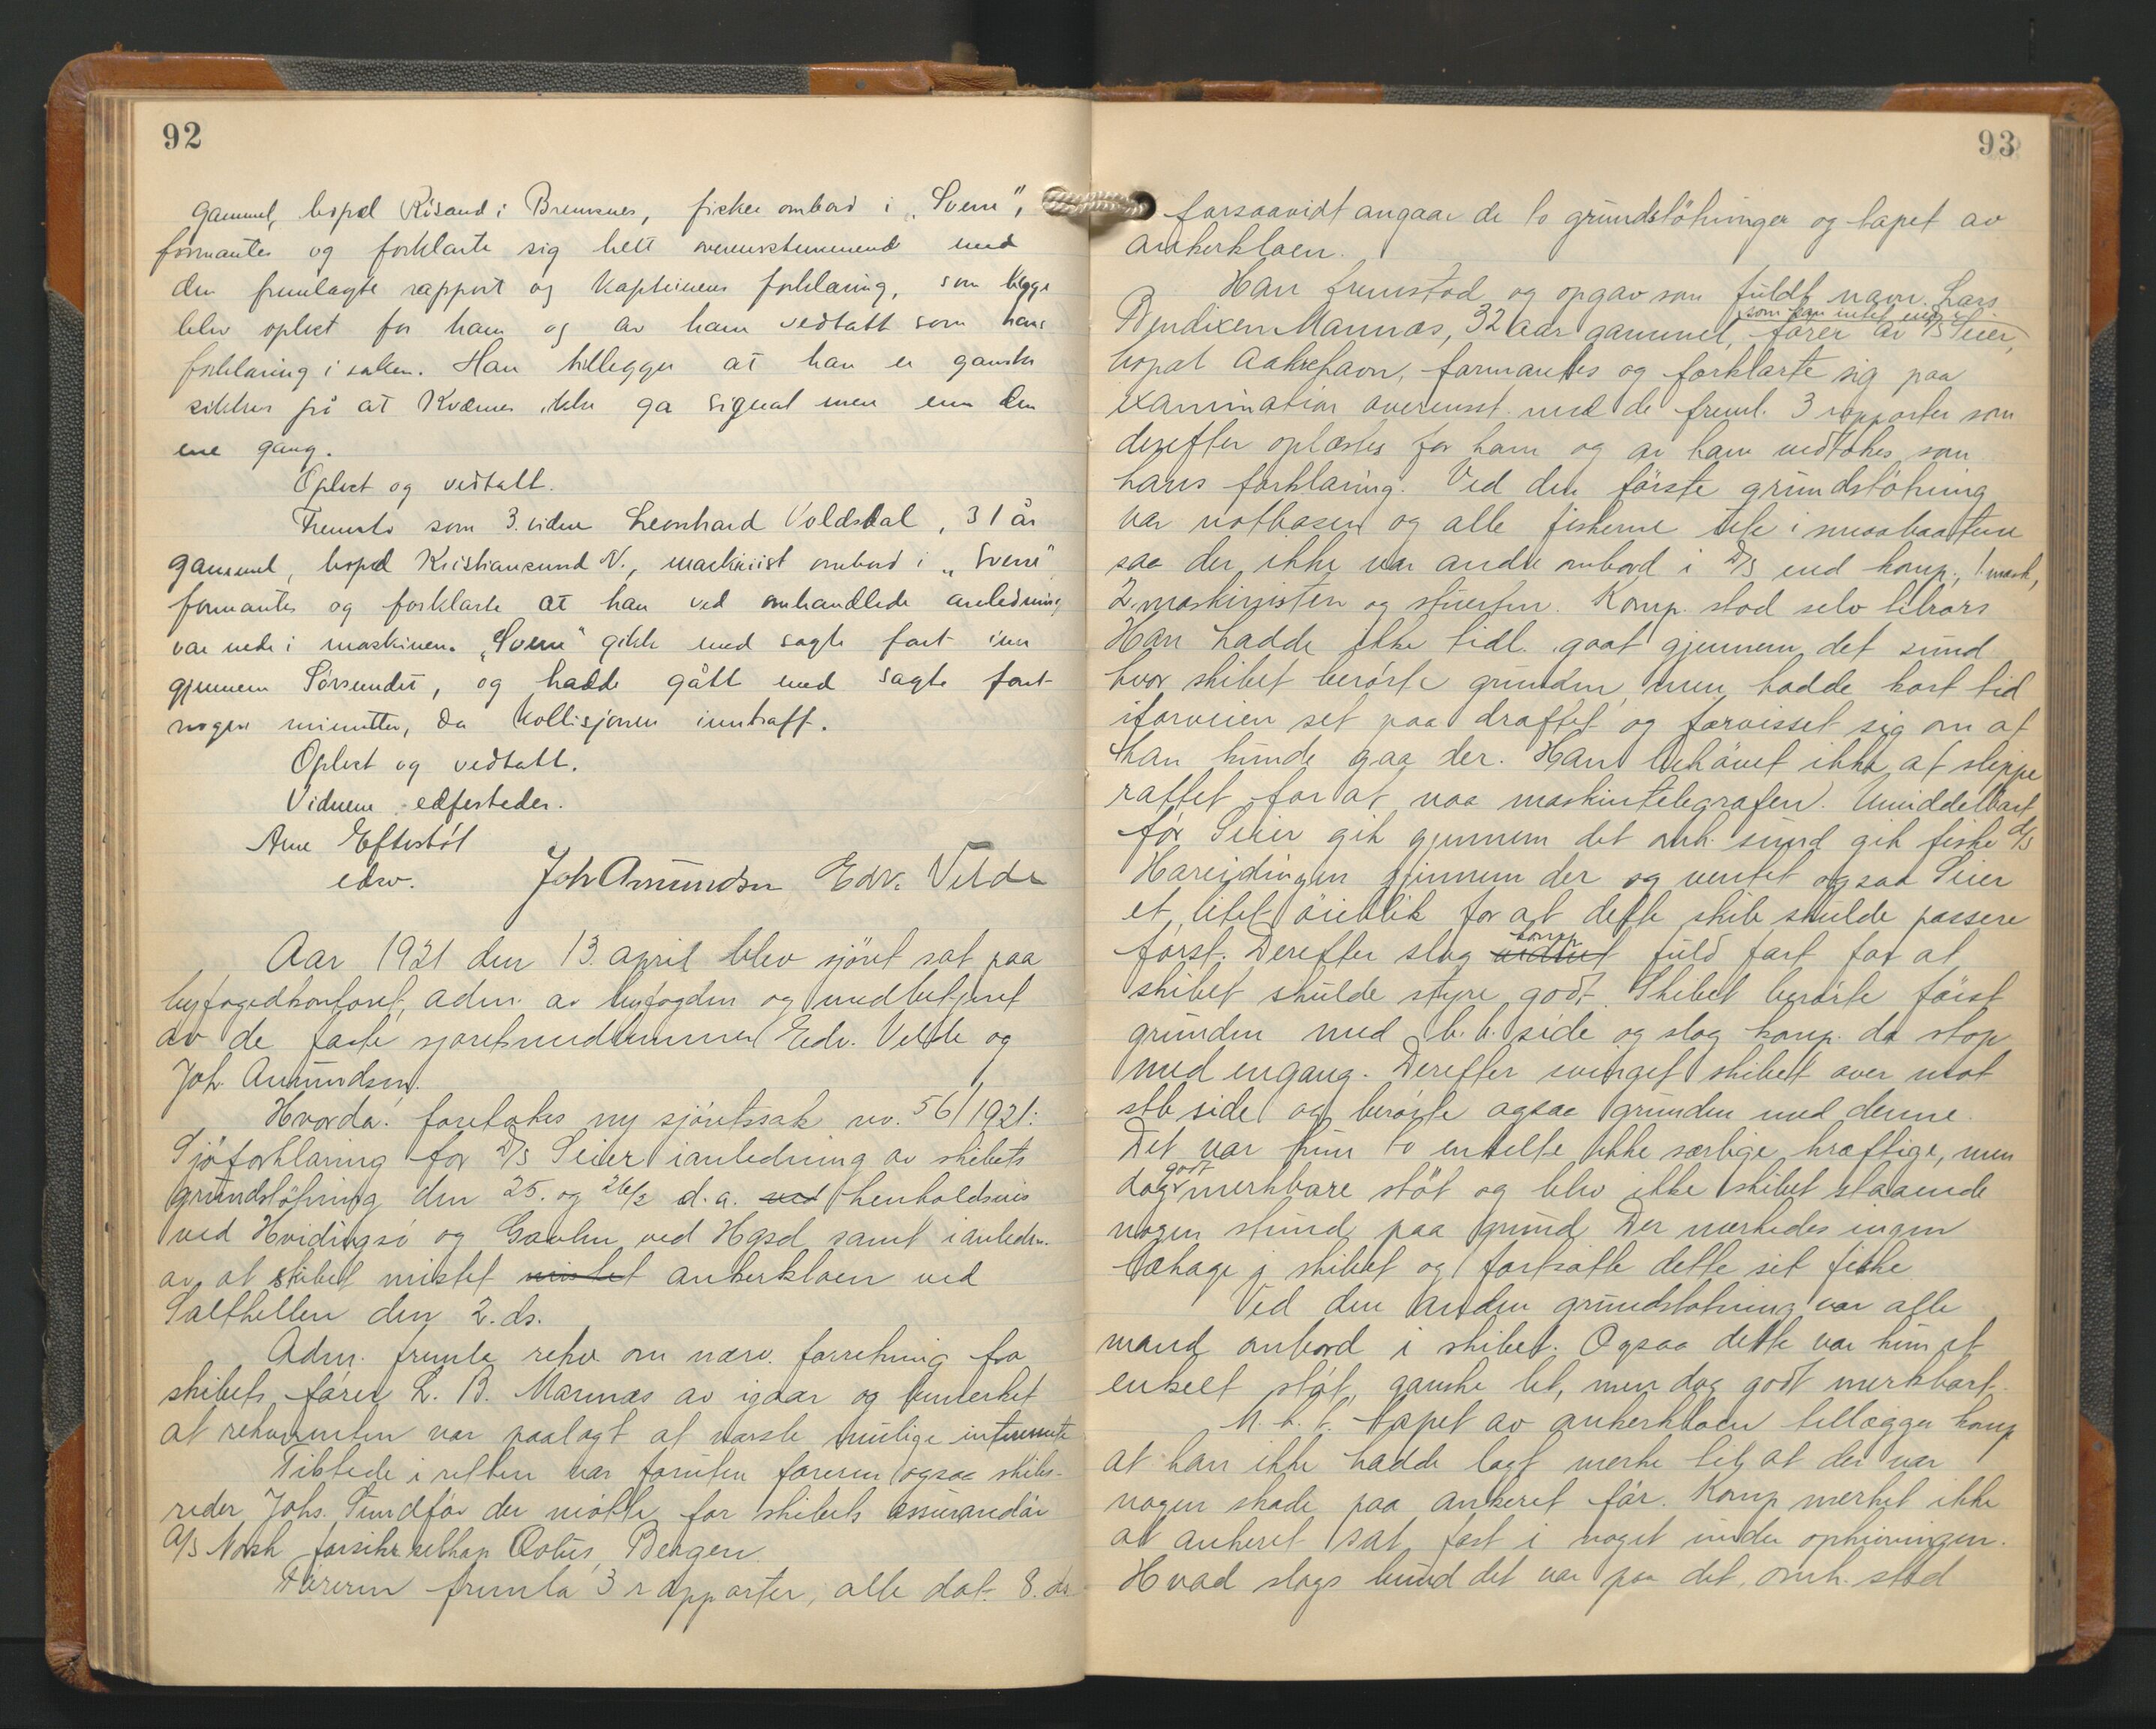 92
gammel, bopel Risand i Bremsnes, fisker ombord i "Sverre",
formantes og forklarte sig helt overensstemmend med
den fremlagte rapport og kapteinens forklaring, som begge
blev oplest for ham og av ham vedtatt som hans
forklaring i saken. Han tillegger at han er ganske
sikker på at Kværnes ikke ga signal mer enn den
ene gang.
Oplest og vedtatt.
Fremsto som 3. vidne Leonhard Voldsdal, 31 år
gammel, bopel Kristiansund N., maskinist ombord i "Sverre"
formantes og forklarte at han ved omhandlede anledning
var nede i maskinen. "Sverre" gikk med sagte fart inn
gjennem Sørsundet, og hadde gått med sagte fart
nogen minutter, da kollisjonen inntraff.
Oplest og vedtatt.
Vidnene edfestedes.
Arne Eftestøl
edsv.
Joh Amundsen Edv. Velde
Aar 1921 den 13. april blev sjöret sat paa
byfogedkontoret, adm. av byfogden og medbetjent
av de faste sjoretsmedlemmer Edv. Velde og
Joh. Amundsen.
Hvorda: foretokes ny sjöretssak nr. 56/1921:
Sjöforklaring for D/S Seier i anledning av skibets
grundstötning den 25. og 26/2 d.a. ved henholdsvis
ved Hvidingsö og Gavlen ved Hgsd samt i anledn.
av at skibet mistet mistet ankerkloen ved
Salthellen den 2. ds.
Adm. fremla rekv. om nærv. forretning fra
skibets förer L. B. Mannes av igaar og bemerket
at rekvirenten var paalagt at varsle mulige interesserte
Tilstede i retten var foruten föreren ogsaa skibs-
reder Johs. Sundför der mötte for skibets assurandör
A/S Norsk forsikr.selskap Æolus, Bergen.
Föreren fremla 3 rapporter, alle dat. 8. ds.
93
forsaavidt angaar de to grundstötninger og tapet av
ankerkloen.
Han fremstod og opgav som fuldt navn Lars
som han intet eier i
Bendixen Mannes, 32 aar gammel, förer av D/S Seier,
bopæl Aakrehavn, formantes og forklarte sig paa
examination overensst. med de freml. 3 rapporter som
derefter oplæstes for ham og av ham vedtokes som
hans forklaring. Ved den förste grundstötning
var notbasen og alle fiskerne ute i smaabaatene
saa der ikke var andre ombord i D/S end komp., 1 mask,
2. maskinisten og stuerten. Komp. stod selv tilrors
Han hadde ikke tidl. gaat gjennem det sund
hvor skibet berörte grunden, men hadde kort tid
iforveien set paa draftet og forvisset sig om at
han kunde gaa der. Han behövet ikke at slippe
rattet for at naa maskintelegrafen. Umiddelbart
för Seier gik gjennem det omh. sund gik fiske D/S
Hareidingen gjennem der og ventet ogsaa Seier
et litet öieblik for at dette skib skulde passere
komp.
först. Derefter slog vidnet fuld fart for at
skibet skulde styre godt. Skibet berörte först
grunden med b.b. side og slog komp. da stop
med engang. Derefter svinget skibet over mot
stb side og berörte ogsaa grunden med denne.
Det var kun to enkelte ikke særlige kræftige, men
godt
dog merkbare stöt og blev ikke skibet staaende
nogen stund paa grund. Der merkedes ingen
lækage i skibet og fortsatte dette sit fiske.
Ved den anden grundstötning var alle
mand ombord i skibet. Ogsaa dette var kun et
enkelt stöt, ganske let, men dog godt merkbart.
M. h. t. tapet av ankerkloen tillægger komp
at han ikke hadde lagt merke til at der var
nogen skade paa ankeret för. Komp merket ikke
at ankeret sat fast i noget under ophivningen.
Hvad slags bund det var paa det omh. sted